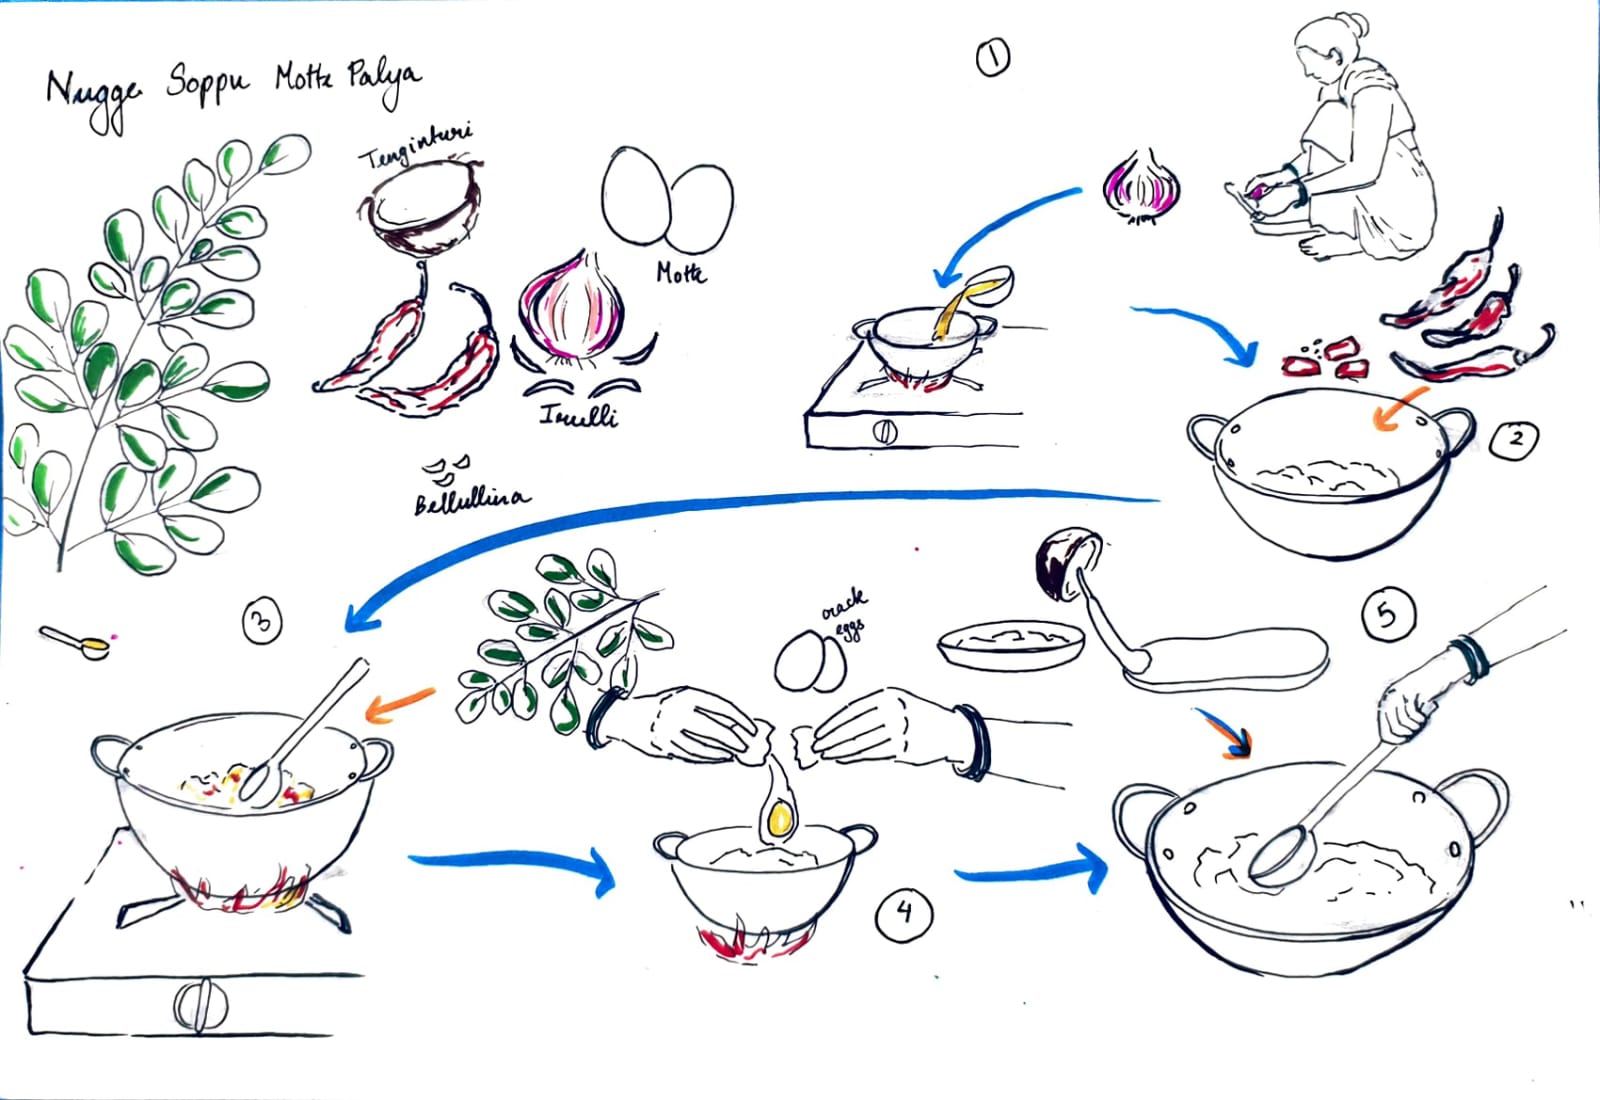 Nugge Soppu Motte Palya
Tenginturi
Motte
Irulli
Bellullina
1
2
3
crack
eggs
4
5